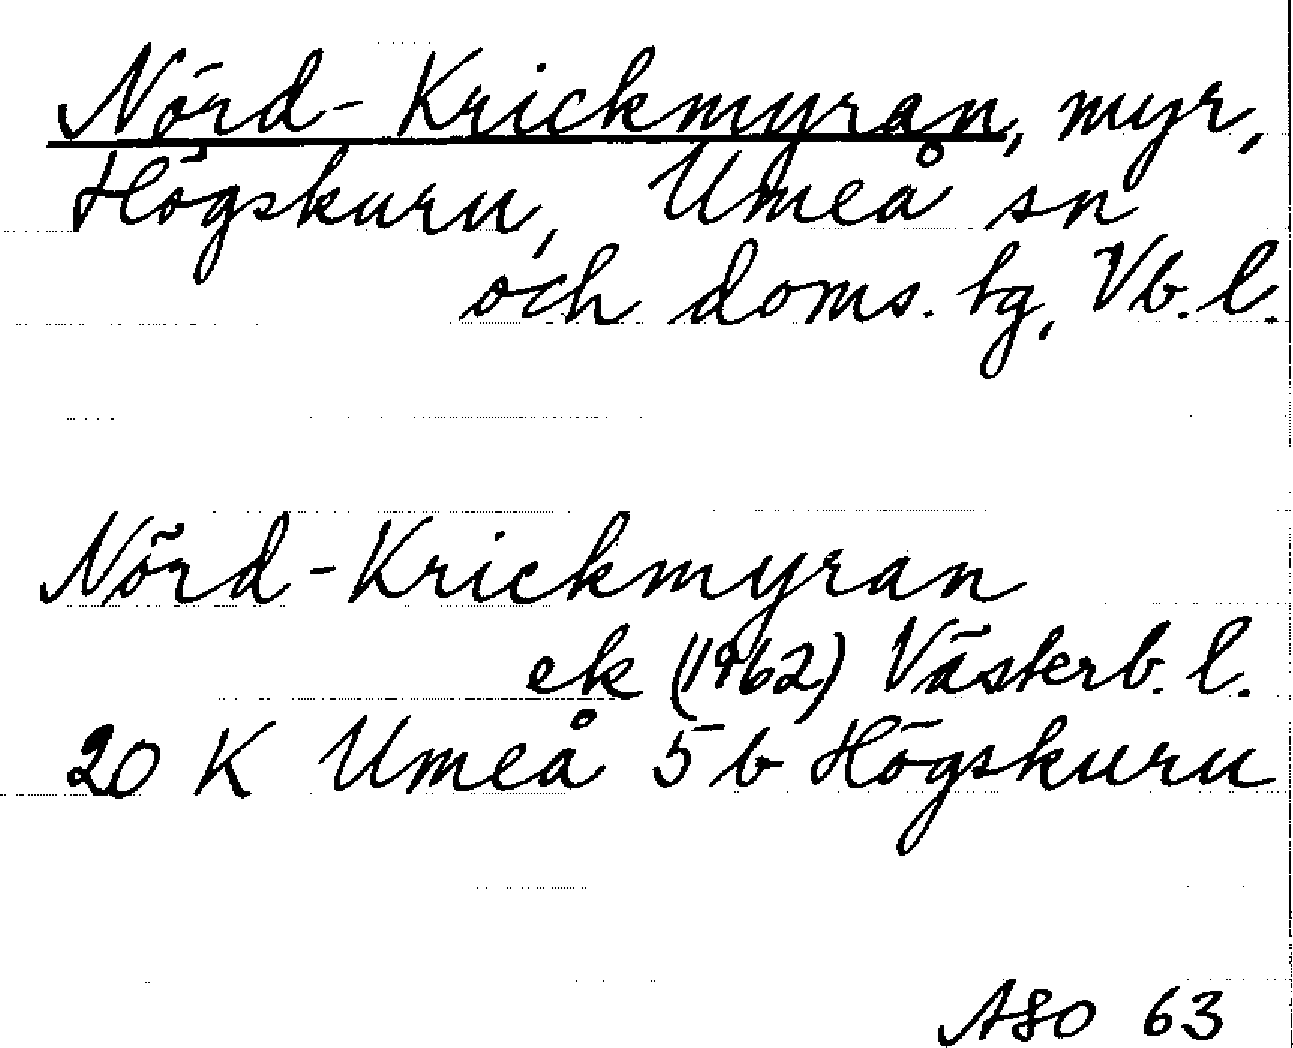 Nörd-Krickmyran, myr,
Högskuru, Umeå sn
och doms. tg, Vb. l.
Nörd-Krickmyran
ek (1962) Västerb. l.
20 K Umeå 5 b Högskuru
ASO 63